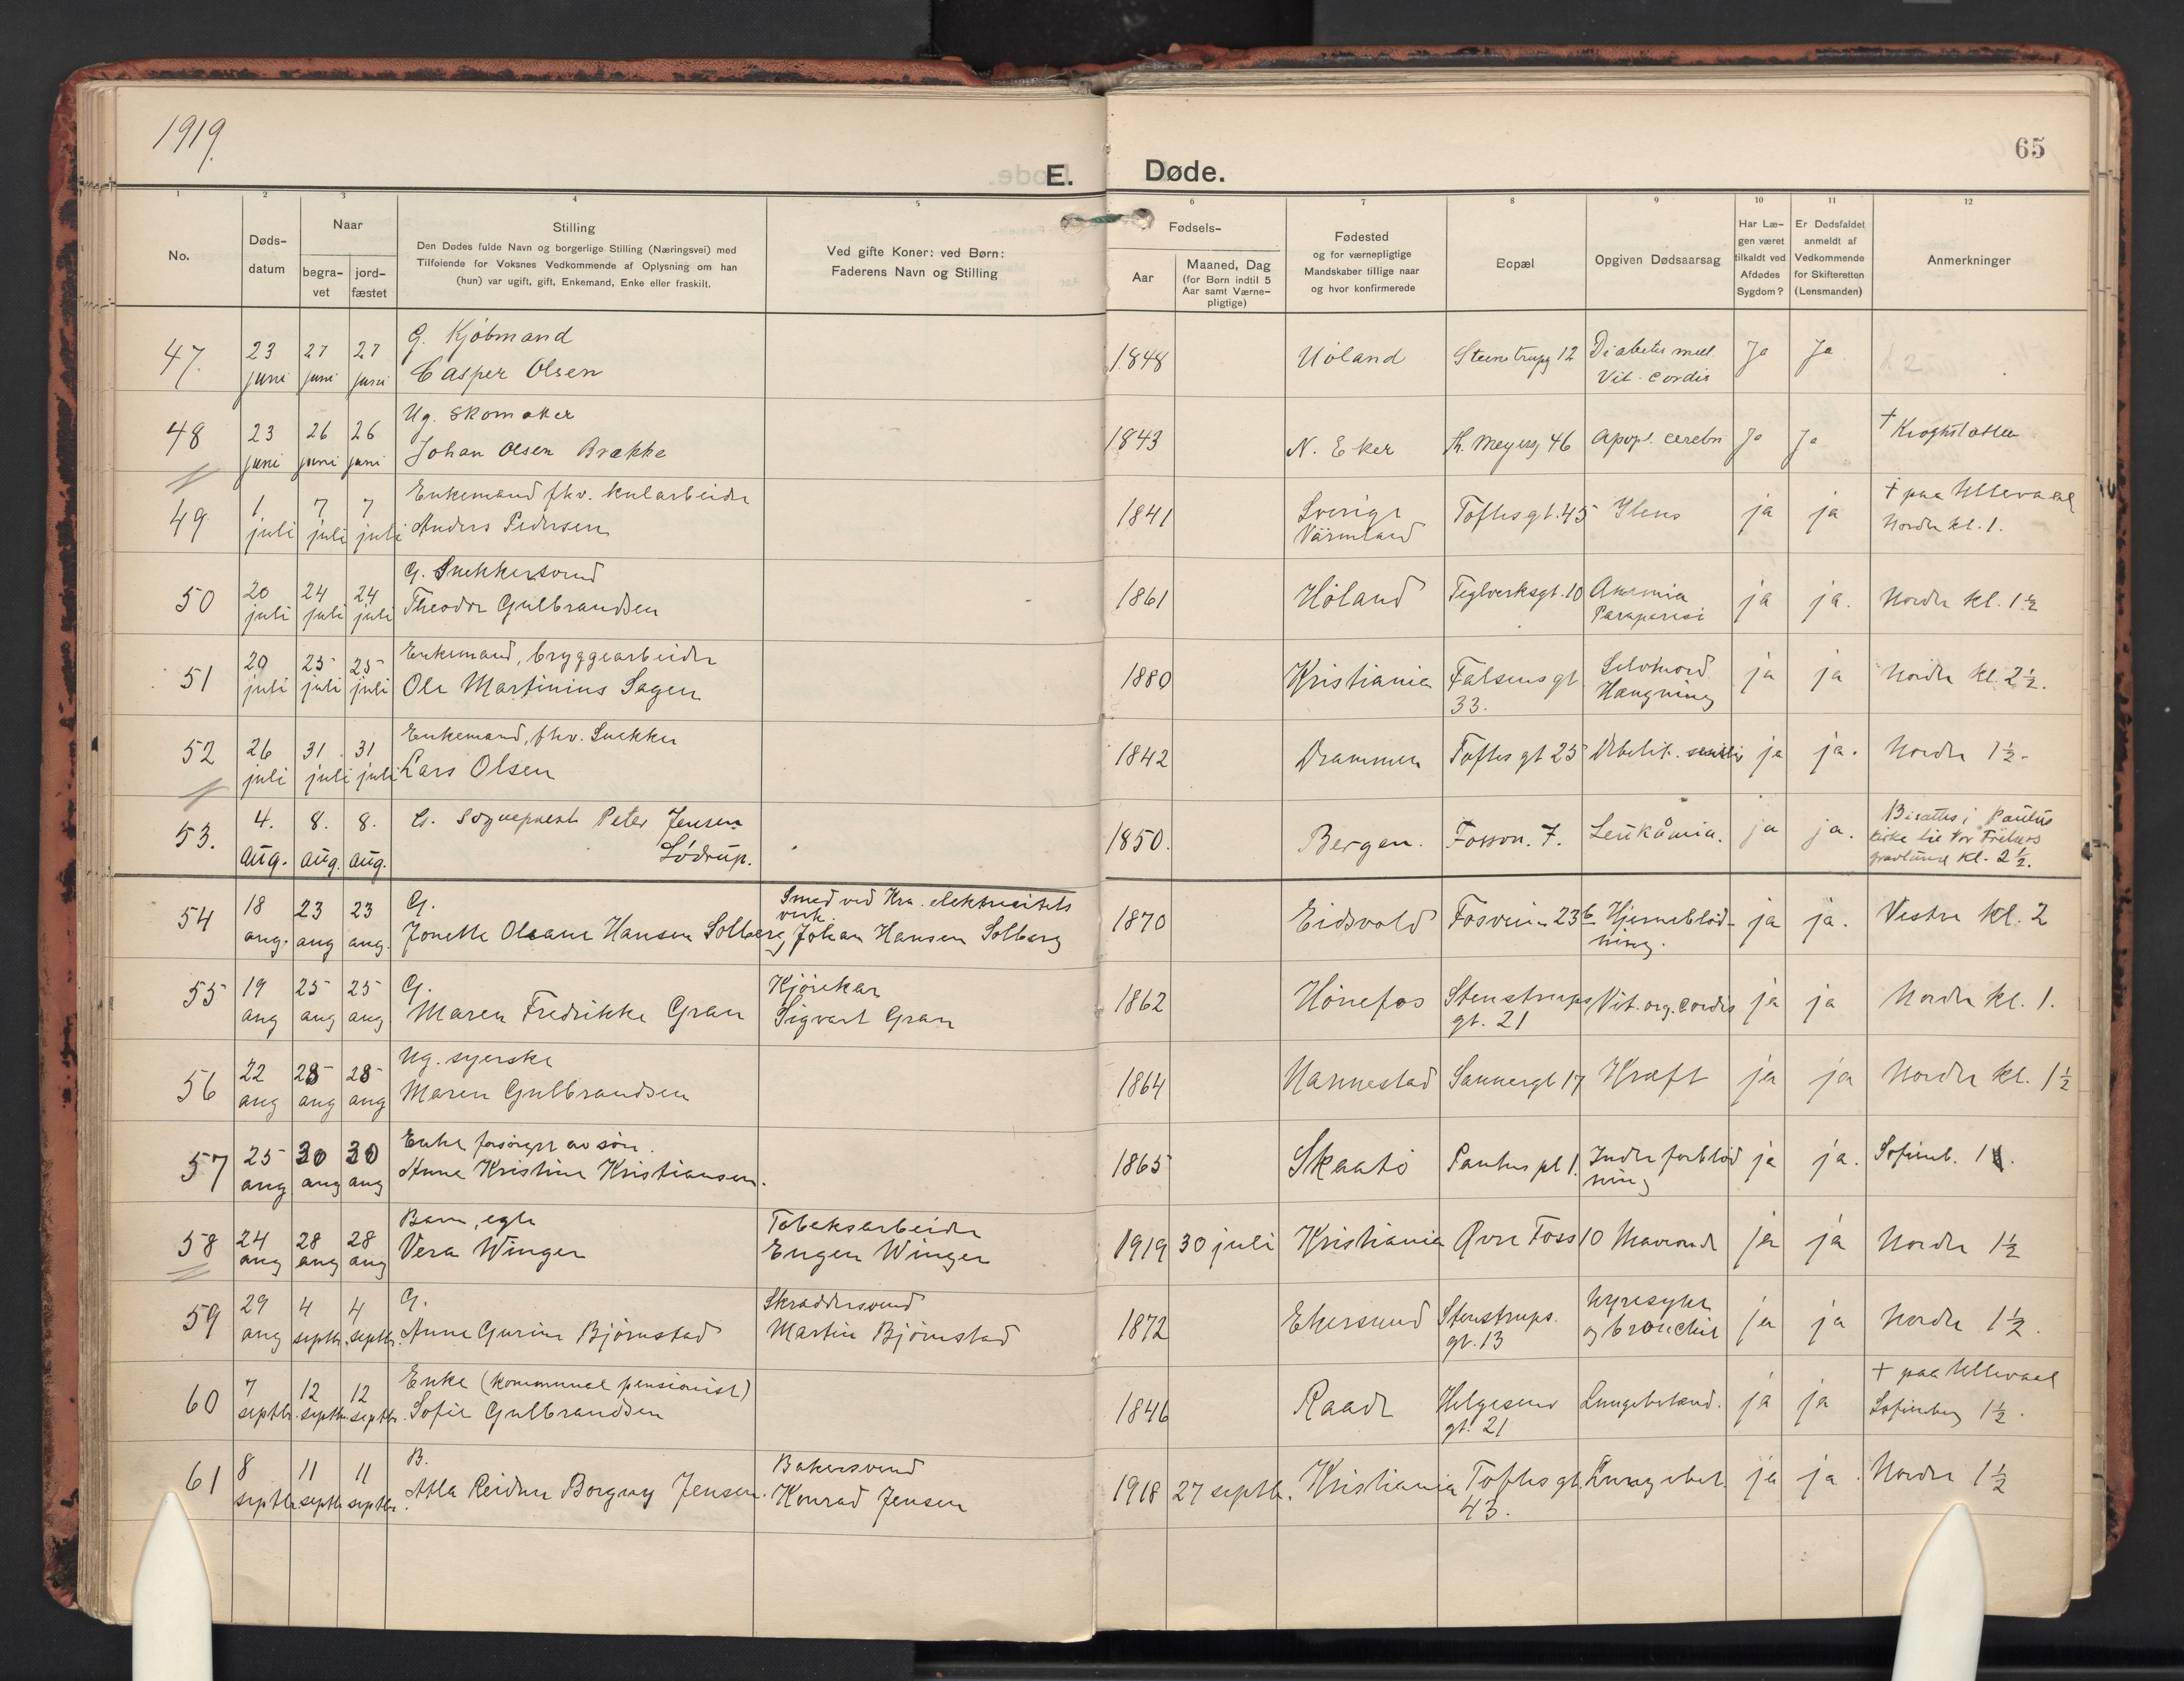 1919.
65
E. Døde.
1 2 3 4 5 6 7 8 9 10 11 12
No.
Døds-
datum
Naar
begra-
vet
jord-
fæstet
Stilling
Den Dødes fulde Navn og borgerlige Stilling (Næringsvei) med
Tilføiende for Voksnes Vedkommende af Oplysning om han
(hun) var ugift, gift, Enkemand, Enke eller fraskilt.
Ved gifte Koner: ved Børn:
Faderens Navn og Stilling
Fødsels-
Aar
Maaned, Dag
(for Børn indtil 5
Aar samt Værne-
pligtige)
Fødested
og for værnepligtige
Mandskaber tillige naar
og hvor konfirmerede
Bopæl
Opgiven Dødsaarsag
Har Læ-
gen været
tilkaldt ved
Afdødes
Sygdom?
Er Dødsfaldet
anmeldt af
Vedkommende
for Skifteretten
(Lensmanden)
Anmerkninger
47. 23 juni 27 juni 27 juni G. Kjøbmand
Casper Olsen
1848 Høland Steenstrupg 12 Diabetes mell.
Vit. cordis Ja Ja
48 23 juni 26 juni 26 juni Ug. Skomaker
Johan Olsen Brække
1843 N. Eker Th. Meyersg 46 Apopl. cerebri Ja Ja † Kroghstøtten
49 1. juli 7 juli 7 juli Enkemand fhv. kularbeider
Anders Pedersen
1841 Sverige
Värmland Toftesgt. 45 Ilens ja ja † paa Ullevaal
Nordre kl. 1.
50 20 juli 24 juli 24 juli G. Snekkersvend
Theodor Gulbrandsen
1861 Høland Teglverksgt. 10 Anæmia
Paraparesi ja ja. Nordre kl. 1½
51 20 juli 25 juli 25 juli Enkemand, bryggearbeider
Ole Martinius Sagen
1880 Kristiania Falsensgt
33. Selvmord.
Hængning ja ja Nordre kl. 2½.
52 26 juli 31 juli 31 juli Enkemand, fhv. Snekker
Lars Olsen
1842 Drammen Toftes gt 25 Debilit. senilis ja ja. Nordre 1½.
53. 4. aug. 8. aug. 8. aug. G. Sogneprest Peter Jensen
Lødrup.
1850. Bergen. Fossv. 7. Leukämia. ja ja. Bisættes i Paulus
kirke til Vor Frelsers
gravlund kl. 2½.
54 18 aug. 23 aug 23 aug. G.
Jonette Oleane Hansen Solberg
Smed ved Kra. elektricitets
verk.
Johan Hansen Solberg
1870 Eidsvold Fosveien 23b Hjerneblød-
ning. ja ja. Vestre kl. 2
55 19 aug 25 aug 25 aug G.
Maren Fredrikke Gran
Kjørekar
Sigvart Gran
1862 Hønefos Stenstrups
gt. 21 Vit. org. cordis ja ja Nordre kl. 1.
56 22 aug 28 aug 28 aug Ug. syerske
Maren Gulbrandsen
1864 Nannestad Sannergt 17 Kræft ja ja Nordre kl. 1½
57 25 aug 30 aug 30 aug Enke forsørget av søn.
Anne Kristine Kristiansen.
1865 Skaatø Paulus pl 1. Indre forblød
ning ja ja. Sofienb. 1.
58 24 aug 28 aug 28 aug Barn, egte
Vera Winger
Tobaksarbeider
Eugen Winger
1919 30 juli Kristiania Øvre Foss 10 ja ja Nordre 1½
59 29 aug 4 septbr. 4 septbr. G.
Anne Gurine Bjørnstad
Skræddersvend
Martin Bjørnstad
1872 Ekersund Stenstrups.
gt. 13 Nyresyke
og bronchit ja ja Nordre 1½.
60 7 septbr. 12 septbr. 12 septbr. Enke (kommunal pensionist)
Sofie Gulbrandsen
1846 Raade Helgesens
gt. 21 Lungebetænd. ja ja † paa Ullevaal
Sofienberg 1½.
61 8 septbr. 11 septbr. 11 septbr. B.
Atla Reidun Borgny Jensen.
Bakersvend
Konrad Jensen
1918 27 septbr. Kristiania Toftes gt.
43. Lungebet. ja ja. Nordre 1½